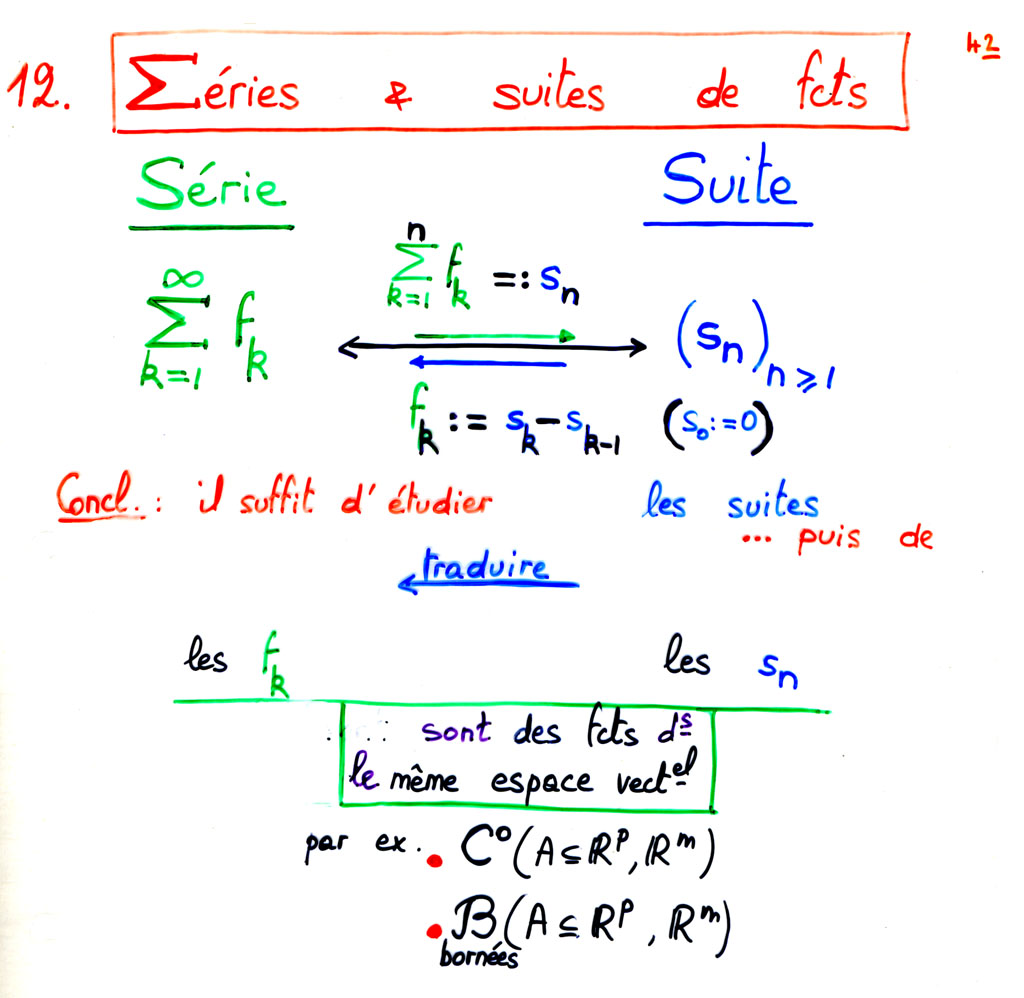 42
12. Σéries & suites de fcts
Série Suite
∑_{k=1}^{n} f_k =: s_n
∑_{k=1}^{∞} f_k ⟷ (s_n)_{n⩾1}
f_k := s_k - s_{k-1} (s_0 := 0)
Concl. : il suffit d'étudier les suites
... puis de
traduire
les f_k les s_n
sont des fcts d^s
le même espace vect^el
par ex. • C^0(A ⊆ ℝ^p, ℝ^m)
• B(A ⊆ ℝ^p, ℝ^m)
bornées